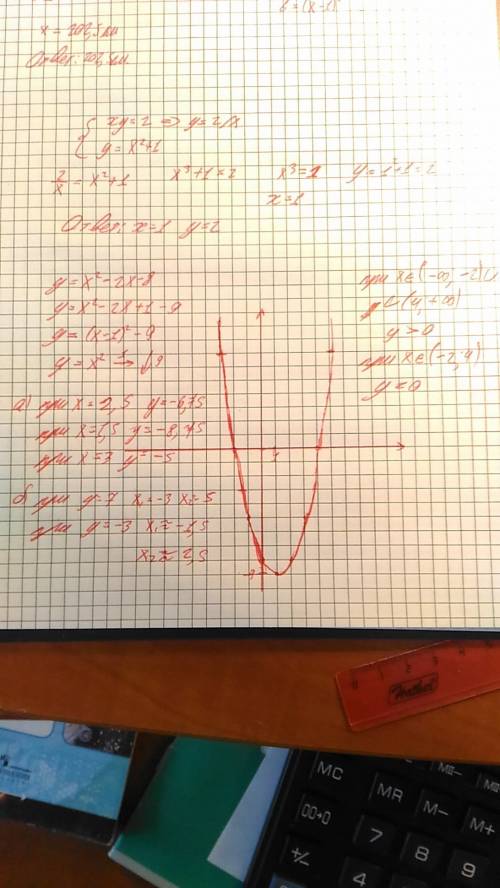 x = 202,5 км
Ответ: 202,5 км
xy=2 => y=2/x
y=x²+1
2/x = x²+1 x³+1=2 x³=1 y=1²+1=2
x=1
Ответ: x=1 y=2
y=x²-2x-8
y=x²-2x+1-9
y=(x-1)²-9
y=x² 1→ ↓9
а) при x=2,5 y=-6,75
при x=1,5 y=-8,75
при x=3 y=-5
б) при y=7 x₁=-3 x₂=5
при y=-3 x₁≈-1,5
x₂≈2,5
при x∈(-∞,-2)∪
(4,+∞)
y>0
при x∈(-2,4)
y<0
1
-9
0 1 2 3
MC
MR
M-
M+
00→0
7
8
9
+/-
4
5
6